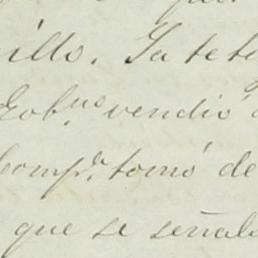 illo. Ya te
Gobno. vendió
Compa. tomó de
que se señal